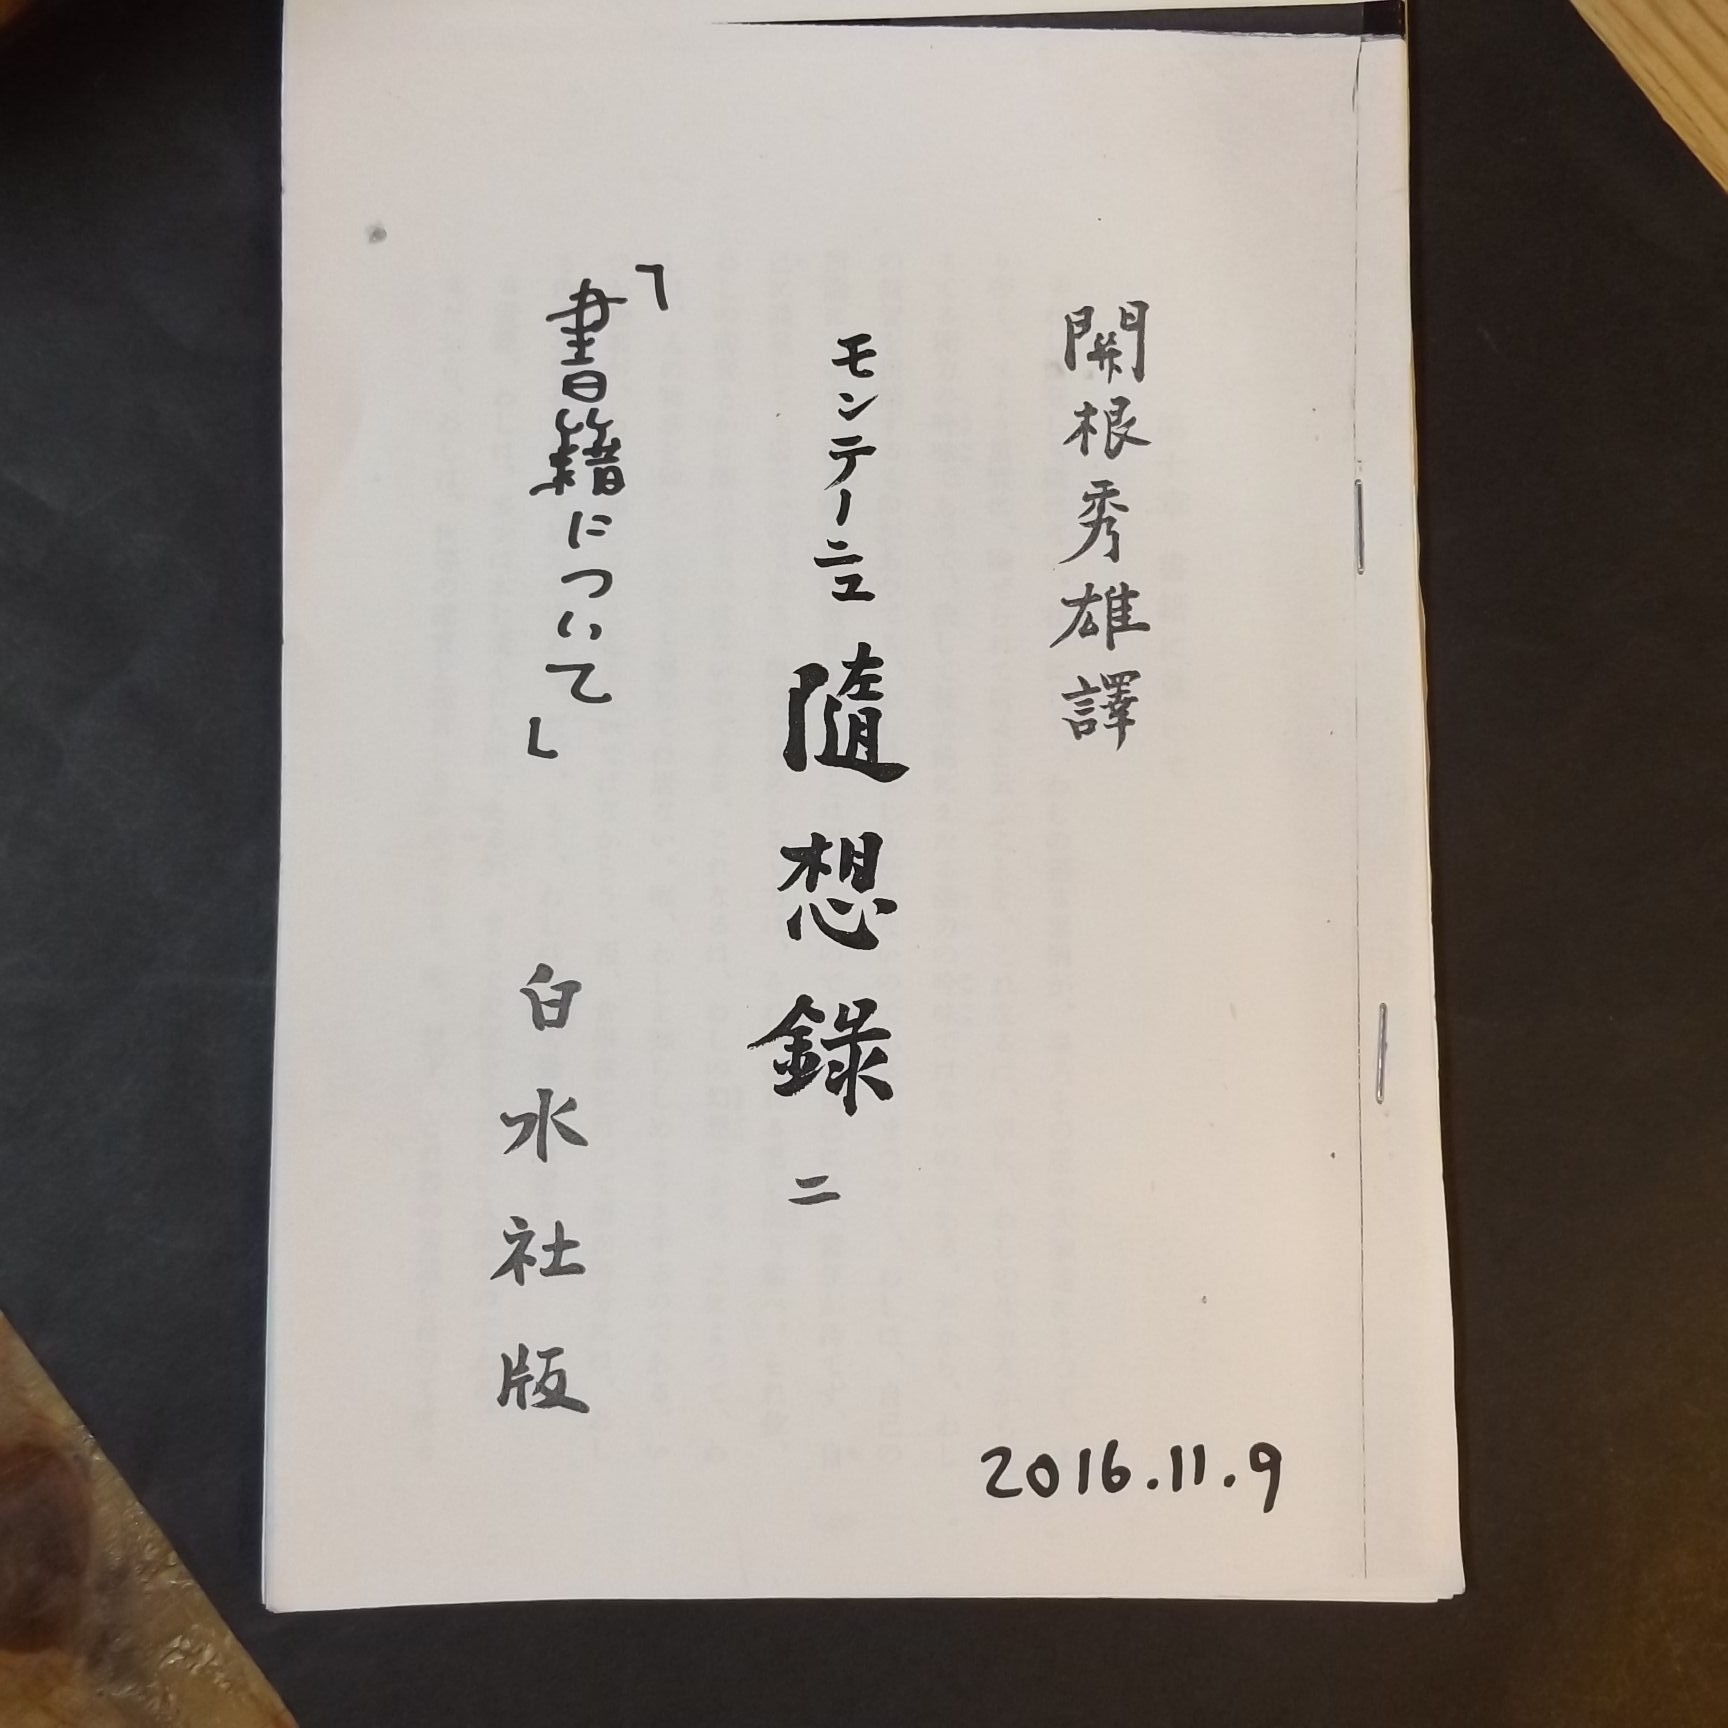 関根秀雄譯
モンテーニュ 隨想録 二
「書籍について」
白水社版
2016.11.9